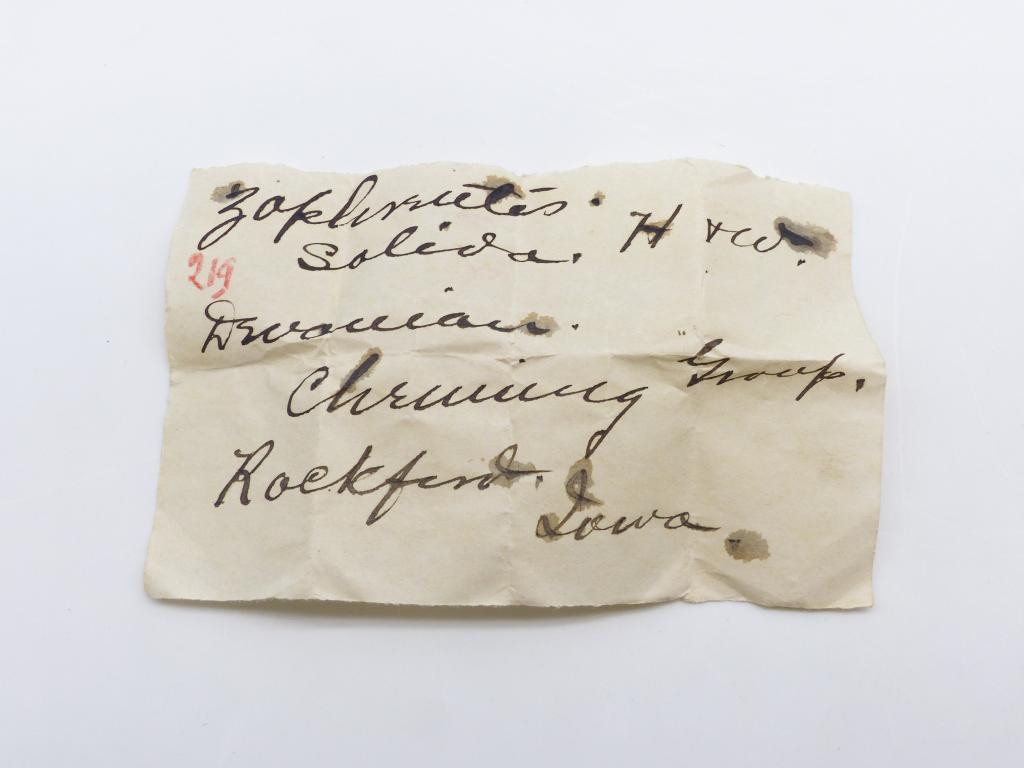 Zaphrentis.
Solida. H + W.
219
Devonian.
Chemung Group.
Rockford.
Iowa.